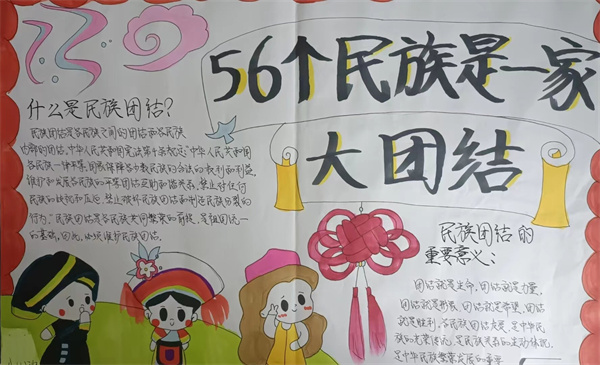 56个民族是一家
大团结
什么是民族团结?
民族团结是各民族之间的团结和各民族
内部的团结。中华人民共和国宪法第十条规定"中华人民共和国
各民族一律平等。国家保障各少数民族的合法的权利和利益,
维护和发展各民族的平等团结互助和谐关系。禁止对任何
民族的歧视和压迫,禁止破坏民族团结和制造民族分裂的
行为。"民族团结是各民族共同繁荣的前提,是祖国统一
的基础,因此,必须维护民族团结。
民族团结的
重要意义:
团结就是生命,团结就是力量,
团结就是希望,团结
就是胜利。各民族团结友爱,是中华民
族的光荣传统,是民族关系的生动体现,
是中华民族繁荣发展的重要